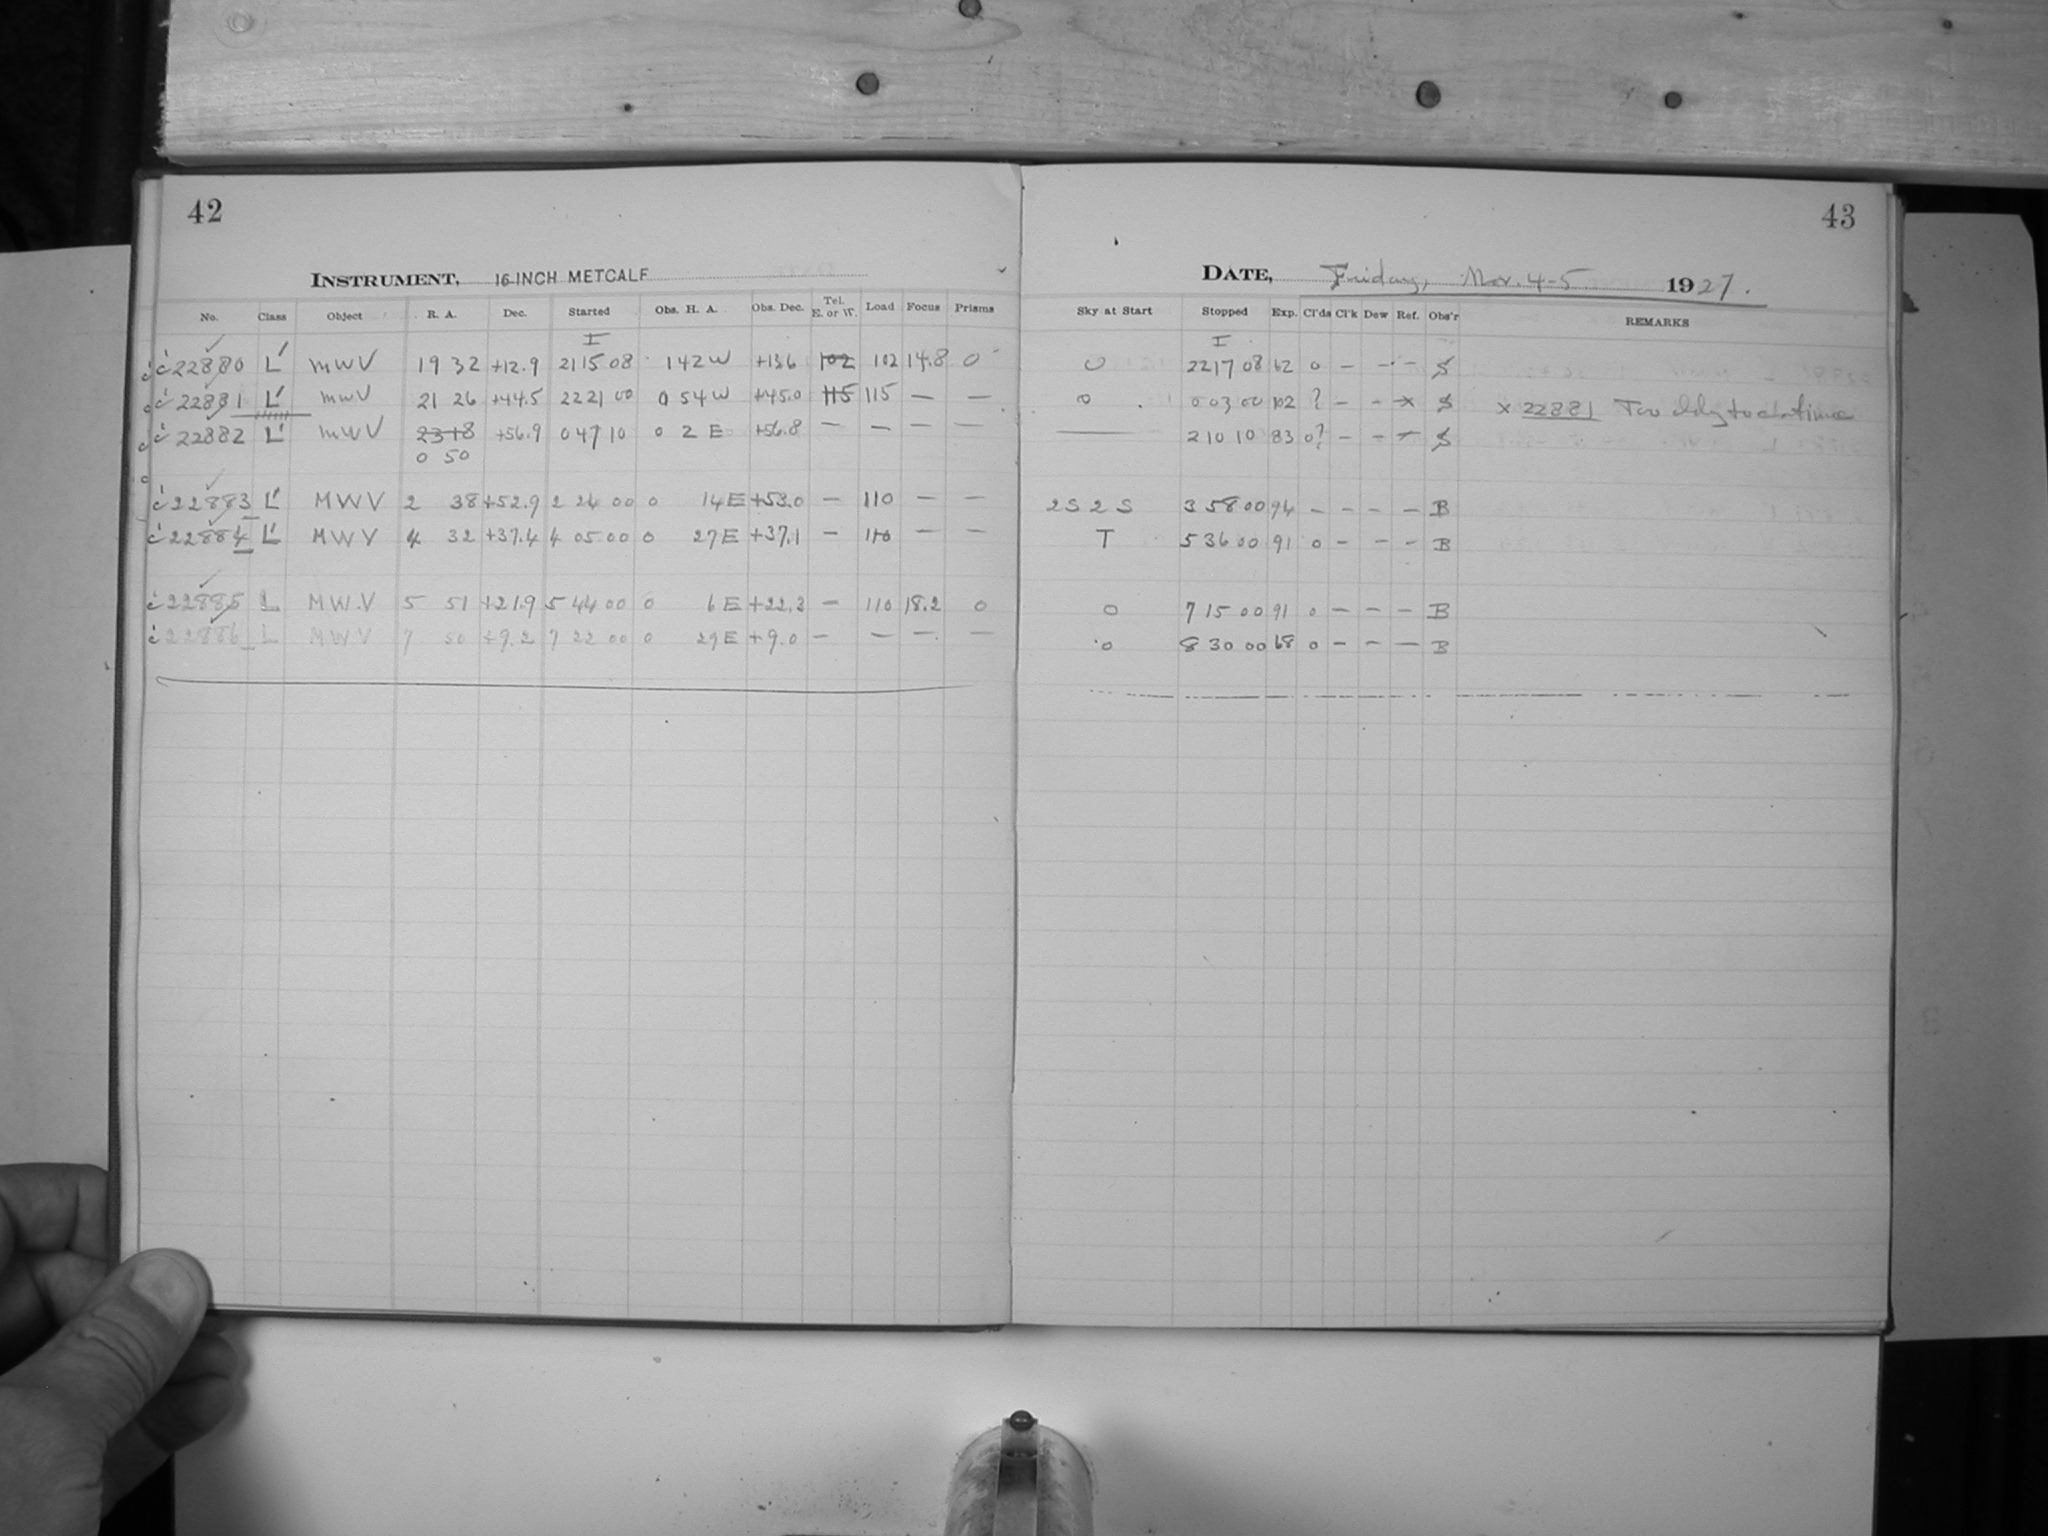 42
INSTRUMENT, 16-INCH METCALF
No. Class Object R. A. Dec. Started Obs. H. A. Obs. Dec. Tel. E. or W. Load Focus Prisms
I
22880 L MWV 19 32 +12.9 21 15 08 1 42 W +13.6 102 102 14.8 0
22881 L MWV 21 26 +44.5 22 21 00 0 54 W +45.0 115 115 — —
22882 L MWV 23 18 +56.9 0 47 10 0 2 E +56.8 — — — —
0 50
22883 L MWV 2 38 +52.9 2 24 00 0 14 E +53.0 — 110 — —
22884 L MWV 4 32 +37.4 4 05 00 0 27 E +37.1 — 110 — —
22885 L MWV 5 51 +21.9 5 44 00 0 6 E +22.3 — 110 18.2 0
22886 L MWV 7 50 +9.2 7 22 00 0 29 E +9.0 — — — —
43
DATE, Friday, Nov. 4-5 1927.
Sky at Start Stopped Exp. Cl'ds Cl'k Dew Ref. Obs'r REMARKS
I
0 22 17 08 62 0 — — — S
0 0 03 00 102 ? — — x S x 22881 Too to
— 2 10 10 83 0? — — — S
2S 2S 3 58 00 94 — — — — B
T 5 36 00 91 0 — — — B
0 7 15 00 91 0 — — — B
0 8 30 00 68 0 — — — B